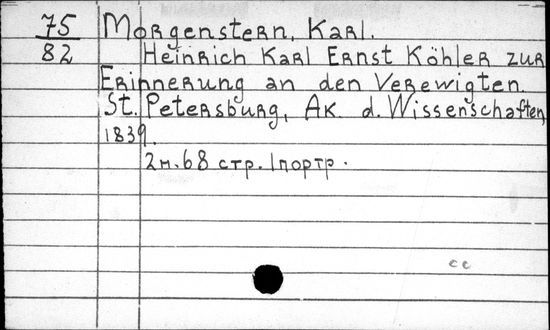 75 Morgenstern, Karl.
82 Heinrich Karl Ernst Köhler zur
Erinnerung an den Verewigten.
St. Petersburg, Ak. d. Wissenschaften,
1839.
2н. 68 стр. 1 портр.
се